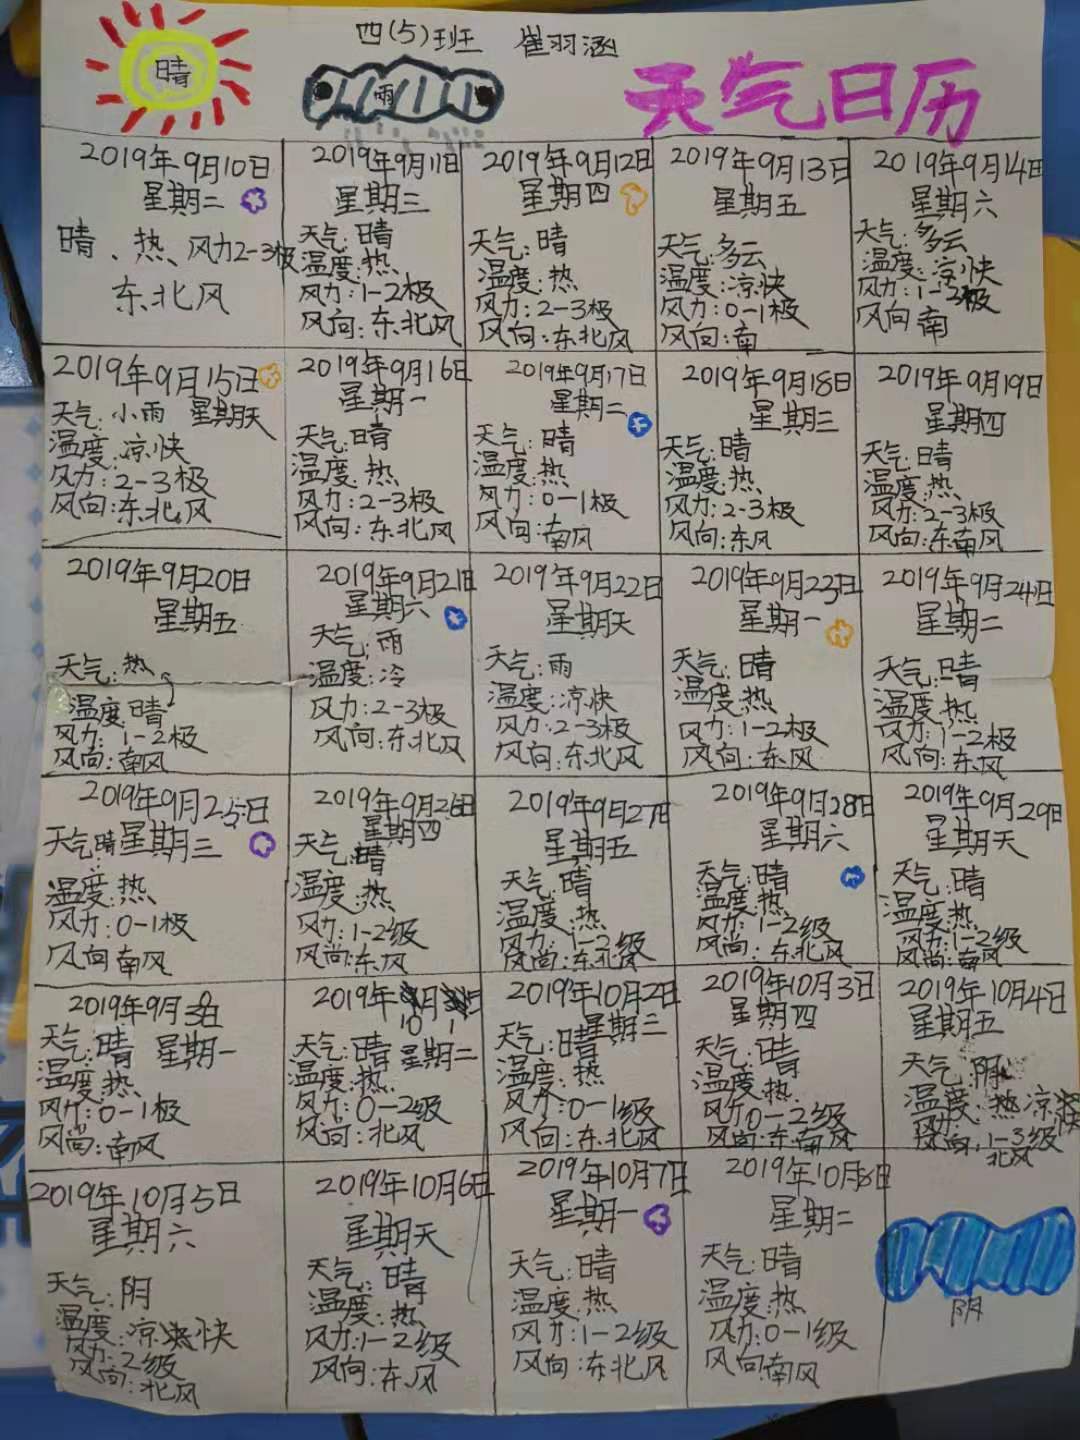 四(5)班 崔羽涵
晴
雨
天气日历
2019年9月10日
星期二
晴、热、风力2-3极
东北风
2019年9月11日
星期三
天气:晴
温度:热
风力:1-2极
风向:东北风
2019年9月12日
星期四
天气:晴
温度:热
风力:2-3极
风向:东北风
2019年9月13日
星期五
天气:多云
温度:凉快
风力:0-1极
风向:南
2019年9月14日
星期六
天气:多云
温度:凉快
风力:1-2极
风向 南
2019年9月15日
天气:小雨 星期天
温度:凉快
风力:2-3极
风向:东北风
2019年9月16日
星期一
天气:晴
温度:热
风力:2-3极
风向:东北风
2019年9月17日
星期二
天气:晴
温度:热
风力:0-1极
风向:南风
2019年9月18日
星期三
天气:晴
温度:热
风力:2-3极
风向:东风
2019年9月19日
星期四
天气:晴
温度:热
风力:2-3极
风向:东南风
2019年9月20日
星期五
天气:热
温度:晴
风力:1-2极
风向:南风
2019年9月21日
星期六
天气:雨
温度:冷
风力:2-3极
风向:东北风
2019年9月22日
星期天
天气:雨
温度:凉快
风力:2-3极
风向:东北风
2019年9月23日
星期一
天气:晴
温度:热
风力:1-2极
风向:东风
2019年9月24日
星期二
天气:晴
温度:热
风力:1-2极
风向:东风
2019年9月25日
天气:晴 星期三
温度:热
风力:0-1极
风向 南风
2019年9月26日
星期四
天气:晴
温度:热
风力:1-2级
风尚:东风
2019年9月27日
星期五
天气:晴
温度:热
风力:1-2级
风尚:东北风
2019年9月28日
星期六
天气:晴
温度:热
风力:1-2级
风尚:东北风
2019年9月29日
星期天
天气:晴
温度:热
风力:1-2级
风尚:南风
2019年9月30日
天气:晴 星期一
温度:热
风力:0-1极
风尚:南风
2019年10月1日
天气:晴 星期二
温度:热
风力:0-2级
风向:北风
2019年10月2日
星期三
天气:晴
温度:热
风力:0-1级
风向:东北风
2019年10月3日
星期四
天气:晴
温度:热
风力:0-2级
风向:东南风
2019年10月4日
星期五
天气:阴
温度:热凉快
风力:1-3级
风向:北风
2019年10月5日
星期六
天气:阴
温度:凉快
风力:2级
风向:北风
2019年10月6日
星期天
天气:晴
温度:热
风力:1-2级
风向:东风
2019年10月7日
星期一
天气:晴
温度:热
风力:1-2级
风向:东北风
2019年10月8日
星期二
天气:晴
温度:热
风力:0-1级
风向南风
阴